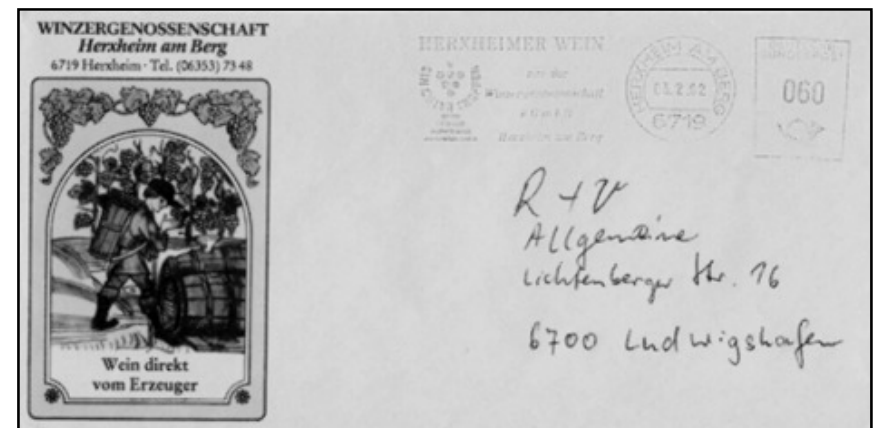 WINZERGENOSSENSCHAFT
Herxheim am Berg
6719 Herxheim · Tel. (06353) 73 48
Wein direkt
vom Erzeuger
HERXHEIMER WEIN
aus der
Winzergenossenschaft
Herxheim am Berg
HERXHEIM AM BERG
6719
060
R + V
Allgemeine
Lichtenberger Str. 16
6700 Ludwigshafen